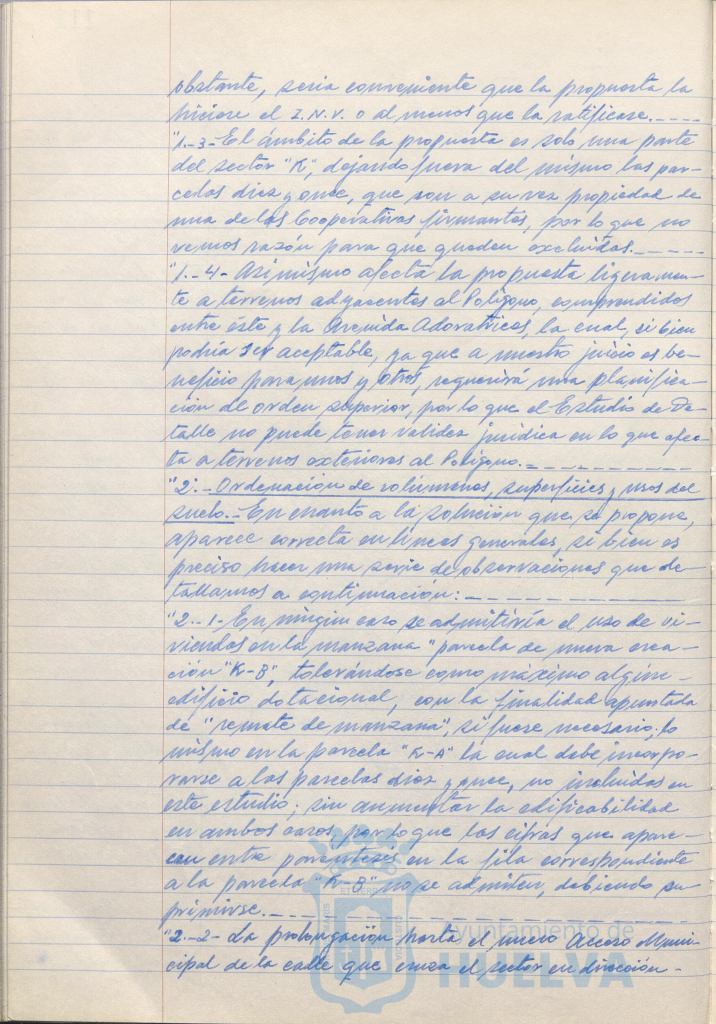 obstante, seria conveniente que la propuesta la
hiciese el I.N.V. o al menos que la ratificase.-----
"1.-3-El ámbito de la propuesta es solo una parte
del sector "K", dejando fuera del mismo las par-
celas diez y once, que son a su vez propiedad de
una de las Cooperativas firmantes, por lo que no
vemos razón para que queden excluidas.-----
"1.-4- Asimismo afecta la propuesta ligeramen-
te a terrenos adyacentes al Polígono, comprendidos
entre éste y la Avenida Adoratrices, la cual, si bien
podría ser aceptable, ya que a nuestro juicio es be-
neficio para unos y otros, requerirá una planifica-
ción de orden superior, por lo que el Estudio de De-
talle no puede tener validez jurídica en lo que afec-
ta a terrenos exteriores al Polígono.---------
"2.-Ordenación de volúmenes, superficies y usos del
suelo.-En cuanto a la solución que se propone,
aparece correcta en líneas generales, si bien es
preciso hacer una serie de observaciones que de-
tallamos a continuación:-----------
"2.-1-En ningún caso se admitiría el uso de vi-
viendas en la manzana "parcela de nueva crea-
ción "K-B", tolerándose como máximo algún-
edificio dotacional, con la finalidad apuntada
de "remate de manzana", si fuese necesario; lo
mismo en la parcela "K-A" la cual debe incorpo-
rarse a las parcelas diez y once, no incluidas en
este estudio; sin aumentar la edificabilidad
en ambos casos, por lo que las cifras que apare-
cen entre paréntesis en la fila correspondiente
a la parcela "K-B" no se admiten, debiendo su-
primirse.---------------
"2.-2- La prolongación hasta el nuevo Acceso Muni-
cipal de la calle que cruza el sector en dirección-
Ayuntamiento de
HUELVA